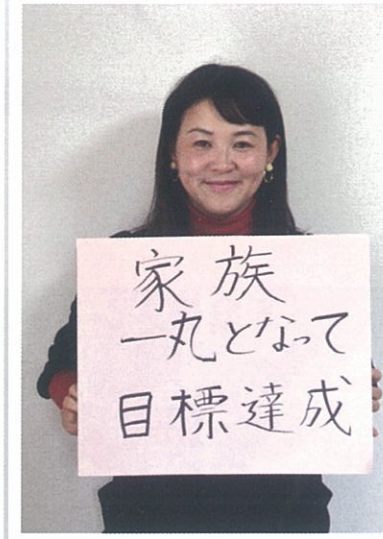 家族
一丸となって
目標達成